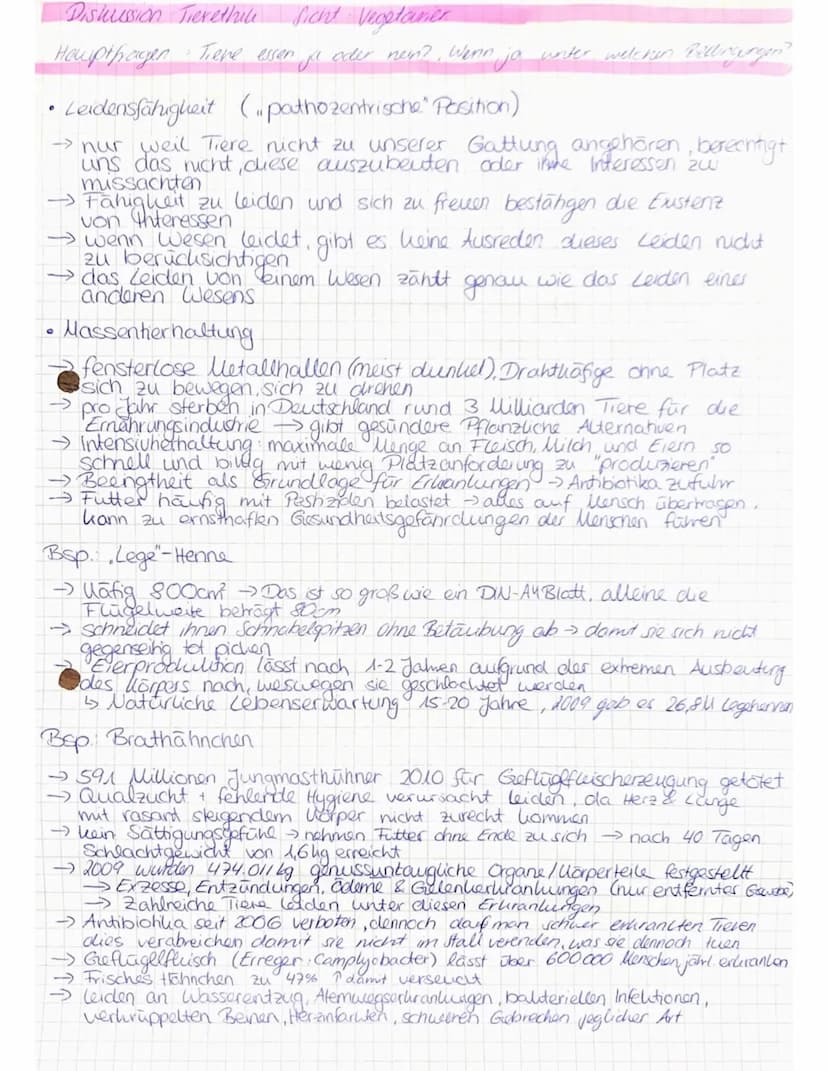 Diskussion Tierethik Sicht Vegetarier
Hauptfragen: Tiere essen ja oder nein?, Wenn ja unter welchen Bedingungen?
• Leidensfähigkeit („pathozentrische" Position)
→ nur weil Tiere nicht zu unserer Gattung angehören, berechtigt
uns das nicht, diese auszubeuten oder ihre Interessen zu
missachten
→ Fähigkeit zu leiden und sich zu freuen bestätigen die Existenz
von Interessen
→ wenn Wesen leidet, gibt es keine Ausreden dieses Leiden nicht
zu berücksichtigen
→ das Leiden von einem Wesen zählt genau wie das Leiden eines
anderen Wesens
• Massentierhaltung
→ fensterlose Metallhallen (meist dunkel), Drahtkäfige ohne Platz
sich zu bewegen, sich zu drehen
→ pro Jahr sterben in Deutschland rund 3 Milliarden Tiere für die
Ernährungsindustrie → gibt gesündere Pflanzliche Alternativen
→ Intensivhaltung: maximale Menge an Fleisch, Milch und Eiern so
schnell und billig mit wenig Platzanforderung zu "produzieren"
→ Beengtheit als Grundlage für Erkrankungen → Antibiotika zufuhr
→ Futter häufig mit Pestiziden belastet → alles auf Mensch übertragen,
kann zu ernsthaften Gesundheitsgefährdungen der Menschen führen
Bsp.: „Lege"-Henne
→ Käfig 800cm² → Das ist so groß wie ein DIN-A4 Blatt, alleine die
Flügelweite beträgt 80cm
→ schneidet ihnen Schnabelspitzen ohne Betäubung ab → damit sie sich nicht
gegenseitig tot picken
→ Eierproduktion lässt nach 1-2 Jahren aufgrund der extremen Ausbeutung
des Körpers nach, weswegen sie geschlachtet werden
↳ Natürliche Lebenserwartung 15-20 Jahre, 2009 gab es 26,8M Legehennen
Bsp.: Brathähnchen
→ 591 Millionen Jungmasthühner 2010 für Geflügelfleischerzeugung getötet
→ Qualzucht + fehlende Hygiene verursacht leiden, da Herz & Lunge
mit rasant steigendem Körper nicht zurecht kommen
→ kein Sättigungsgefühl → nehmen Futter ohne Ende zu sich → nach 40 Tagen
Schlachtgewicht von 1,6kg erreicht
→ 2009 wurden 474.011kg genussuntaugliche Organe/Körperteile festgestellt
→ Exzesse, Entzündungen, Ödeme & Gelenkerkrankungen (nur entferntes Gewebe)
→ Zahlreiche Tiere leiden unter diesen Erkrankungen
→ Antibiotika seit 2006 verboten, dennoch darf man schwer erkrankten Tieren
dies verabreichen damit sie nicht im Stall verenden, was sie dennoch tuen
→ Geflügelfleisch (Erreger: Camplyobacter) lässt über 600000 Menschen jährl. erkranken
→ Frisches Hähnchen zu 47% ↑ damit verseucht
→ leiden an Wasserentzug, Atemwegserkrankungen, bakteriellen Infektionen,
verkrüppelten Beinen, Herzinfarkten, schweren Gebrechen jeglicher Art